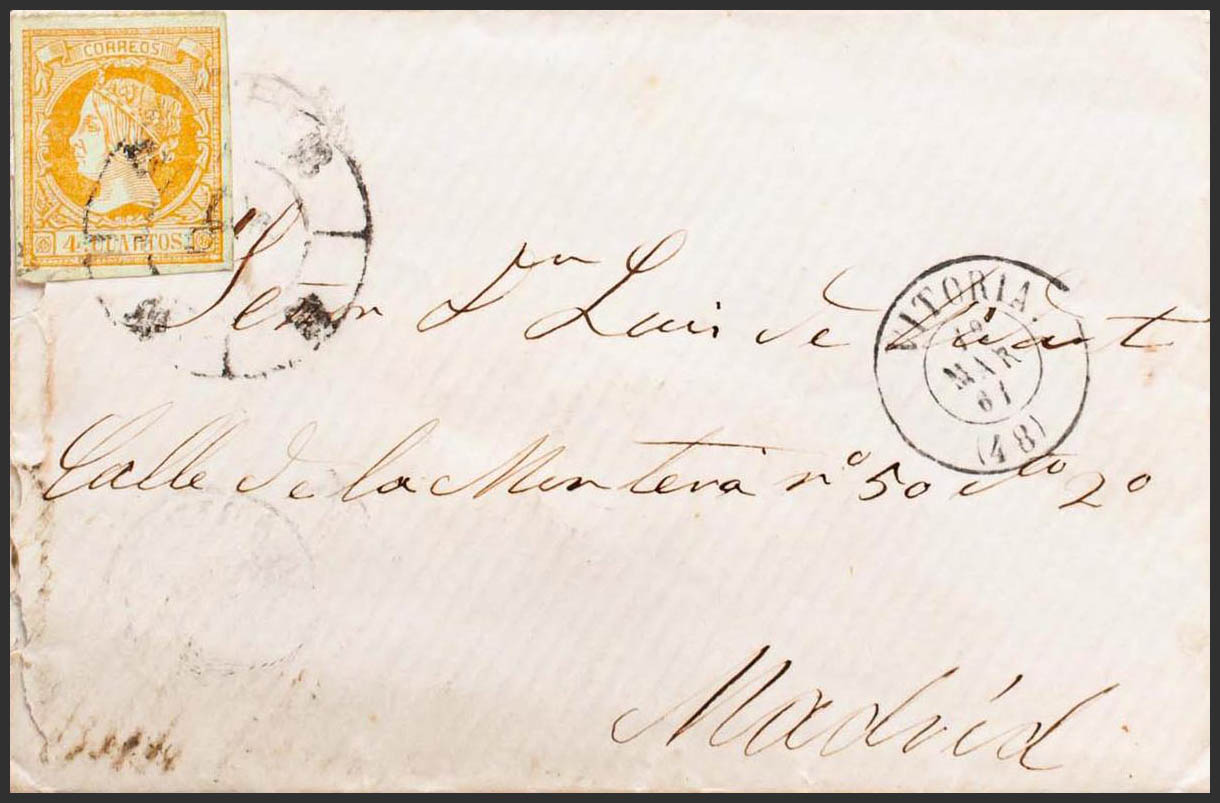 CORREOS
4 CUARTOS
Señor Dn Luis de
VITORIA.
MAR
61
(48)
Calle de la Montera nº 50 cto 2º
Madrid